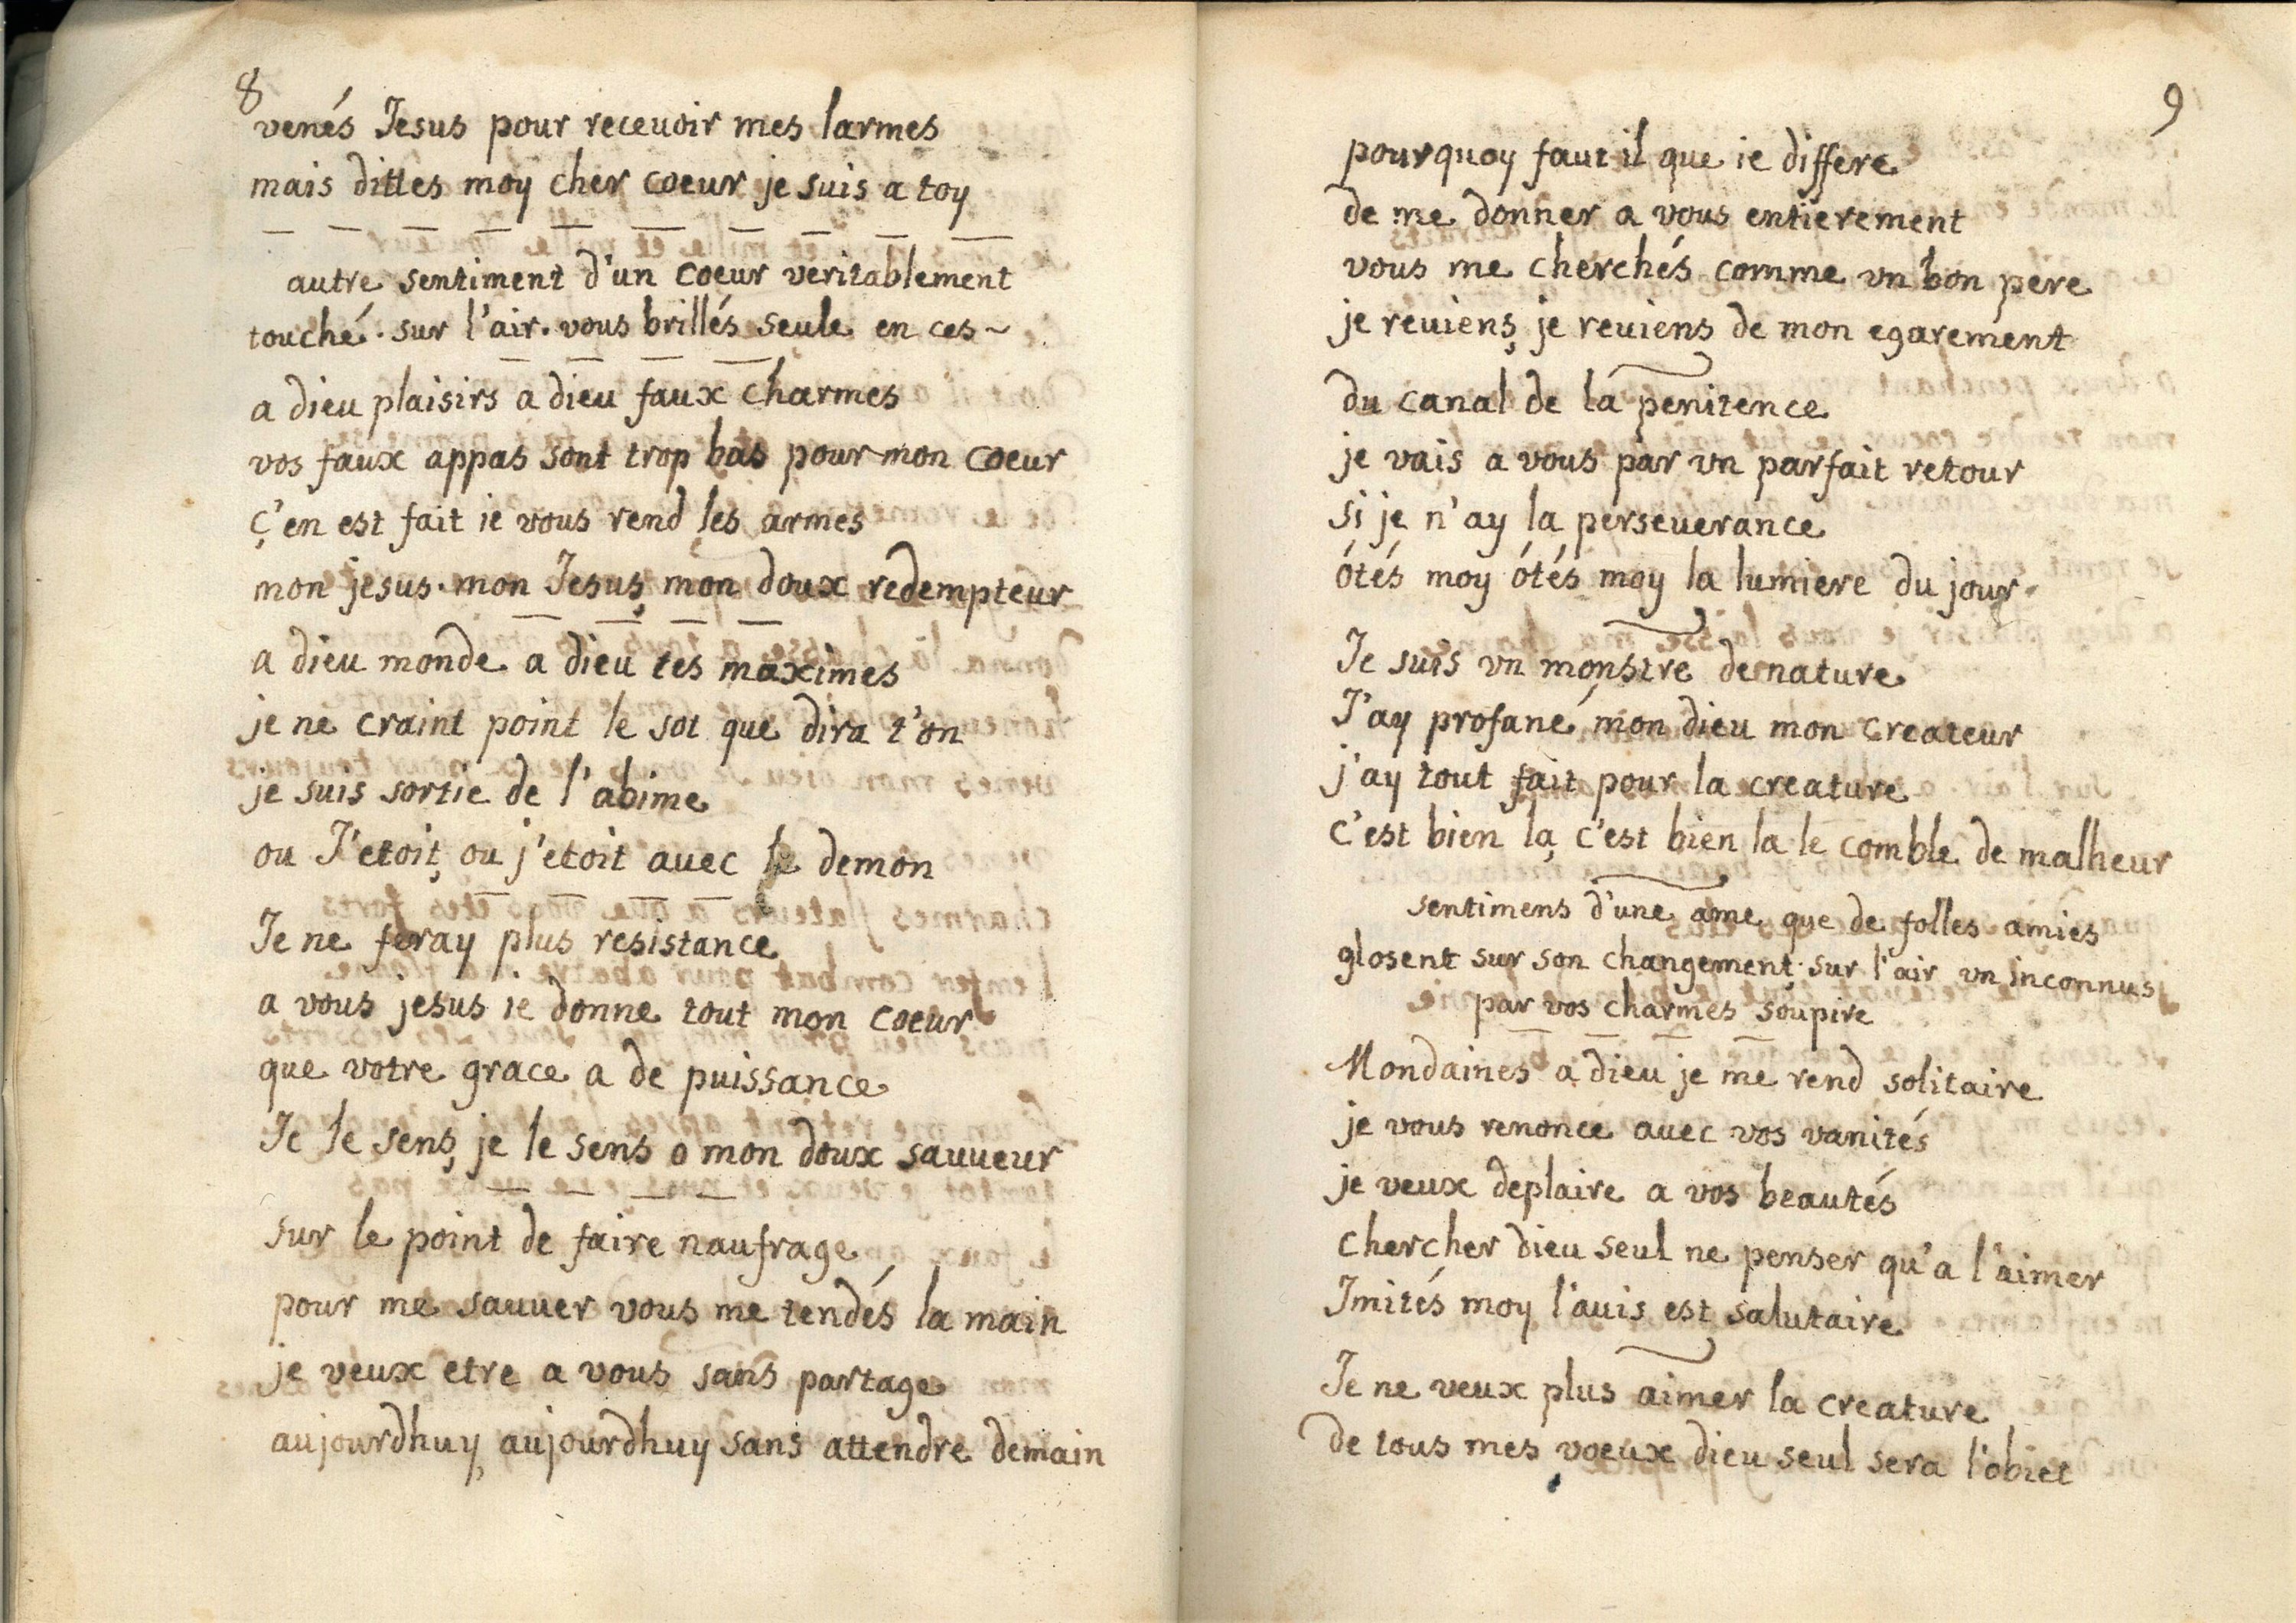 8
venés Jesus pour receuoir mes larmes
mais dittes moy cher coeur je suis a toy
autre sentiment d'un coeur veritablement
touché. sur l'air. vous brillés seule en ces~
a dieu plaisirs a dieu faux charmes
vos faux appas sont trop bas pour mon coeur
ç'en est fait ie vous rend les armes
mon jesus. mon Jesus, mon doux redempteur
a dieu monde a dieu tes maximes
je ne craint point le sot que dira t'on
je suis sortie de l'abime
ou J'etoit, ou j'etoit auec le demon
Je ne feray plus resistance
a vous jesus ie donne tout mon coeur
que votre grace a de puissance
Je le sens, je le sens o mon doux sauueur
sur le point de faire naufrage
pour me sauuer vous me tendés la main
je veux etre a vous sans partage
aujourdhuy, aujourdhuy sans attendre demain
9
pourquoy faut il que ie differe
de me donner a vous entierement
vous me cherchés comme vn bon pere
je reuiens, je reuiens de mon egarement
du canal de la penitence
je vais a vous par vn parfait retour
si je n'ay la perseuerance
ótés moy ótés moy la lumiere du jour.
Je suis vn monstre denature
J'ay profané mon dieu mon createur
j'ay tout fait pour la creature
c'est bien la, c'est bien la le comble de malheur
sentimens d'une ame que de folles amies
glosent sur son changement. sur l'air vn inconnus
par vos charmes soupire
Mondaines a dieu je me rend solitaire
je vous renonce auec vos vanités
je veux deplaire a vos beautés
chercher dieu seul ne penser qu'a l'aimer
Jmités moy l'auis est salutaire
Je ne veux plus aimer la creature
De tous mes voeux dieu seul sera l'obiet